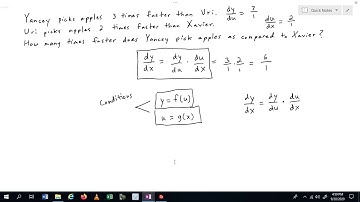 Yancey picks apples 3 times faster than Uri. dy/du = 3/1
Uri picks apples 2 times faster than Xavier. du/dx = 2/1
How many times faster does Yancey pick apples as compared to Xavier?
dy/dx = dy/du · du/dx = 3/1 · 2/1 = 6/1
Conditions
y = f(u)
u = g(x)
dy/dx = dy/du · du/dx